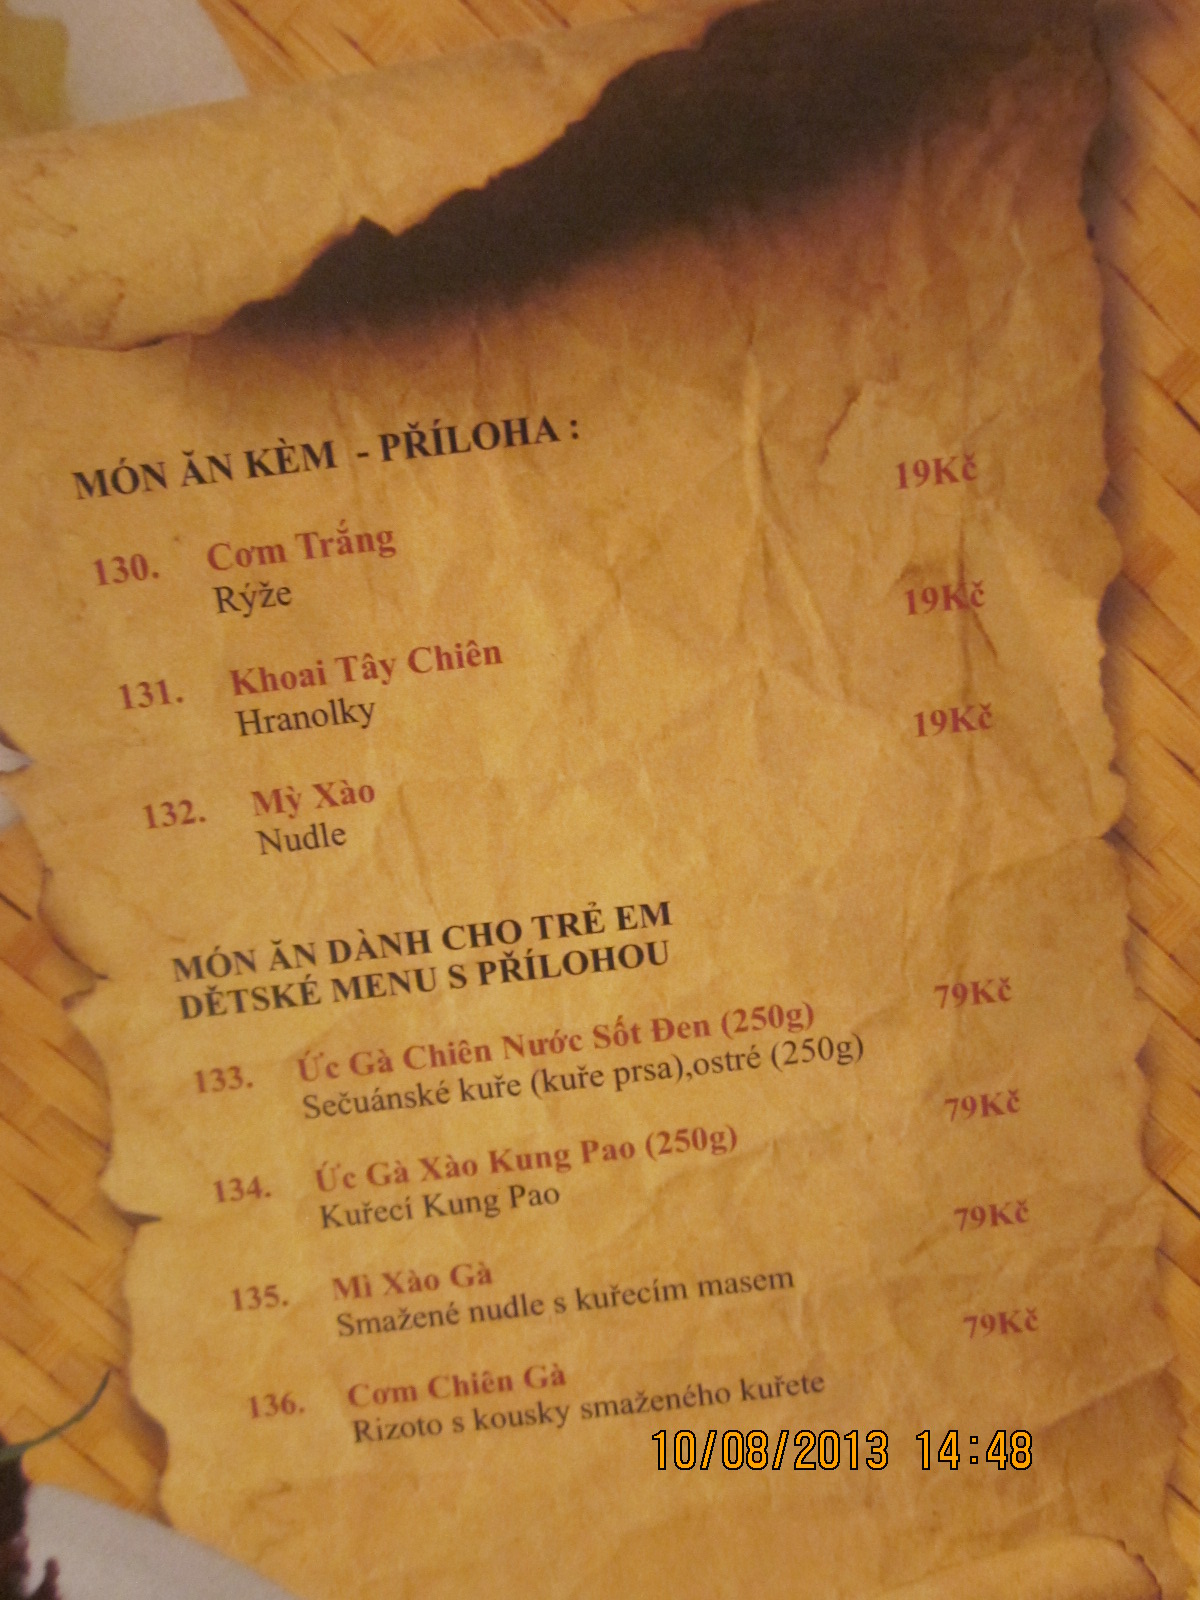 MÓN ĂN KÈM - PŘÍLOHA :
130. Cơm Trắng 19Kč
Rýže
131. Khoai Tây Chiên 19Kč
Hranolky
132. Mỳ Xào 19Kč
Nudle
MÓN ĂN DÀNH CHO TRẺ EM
DĚTSKÉ MENU S PŘÍLOHOU
133. Ức Gà Chiên Nước Sốt Đen (250g) 79Kč
Sečuánské kuře (kuře prsa),ostré (250g)
134. Ức Gà Xào Kung Pao (250g) 79Kč
Kuřecí Kung Pao
135. Mì Xào Gà 79Kč
Smažené nudle s kuřecím masem
136. Cơm Chiên Gà 79Kč
Rizoto s kousky smaženého kuřete
10/08/2013 14:48